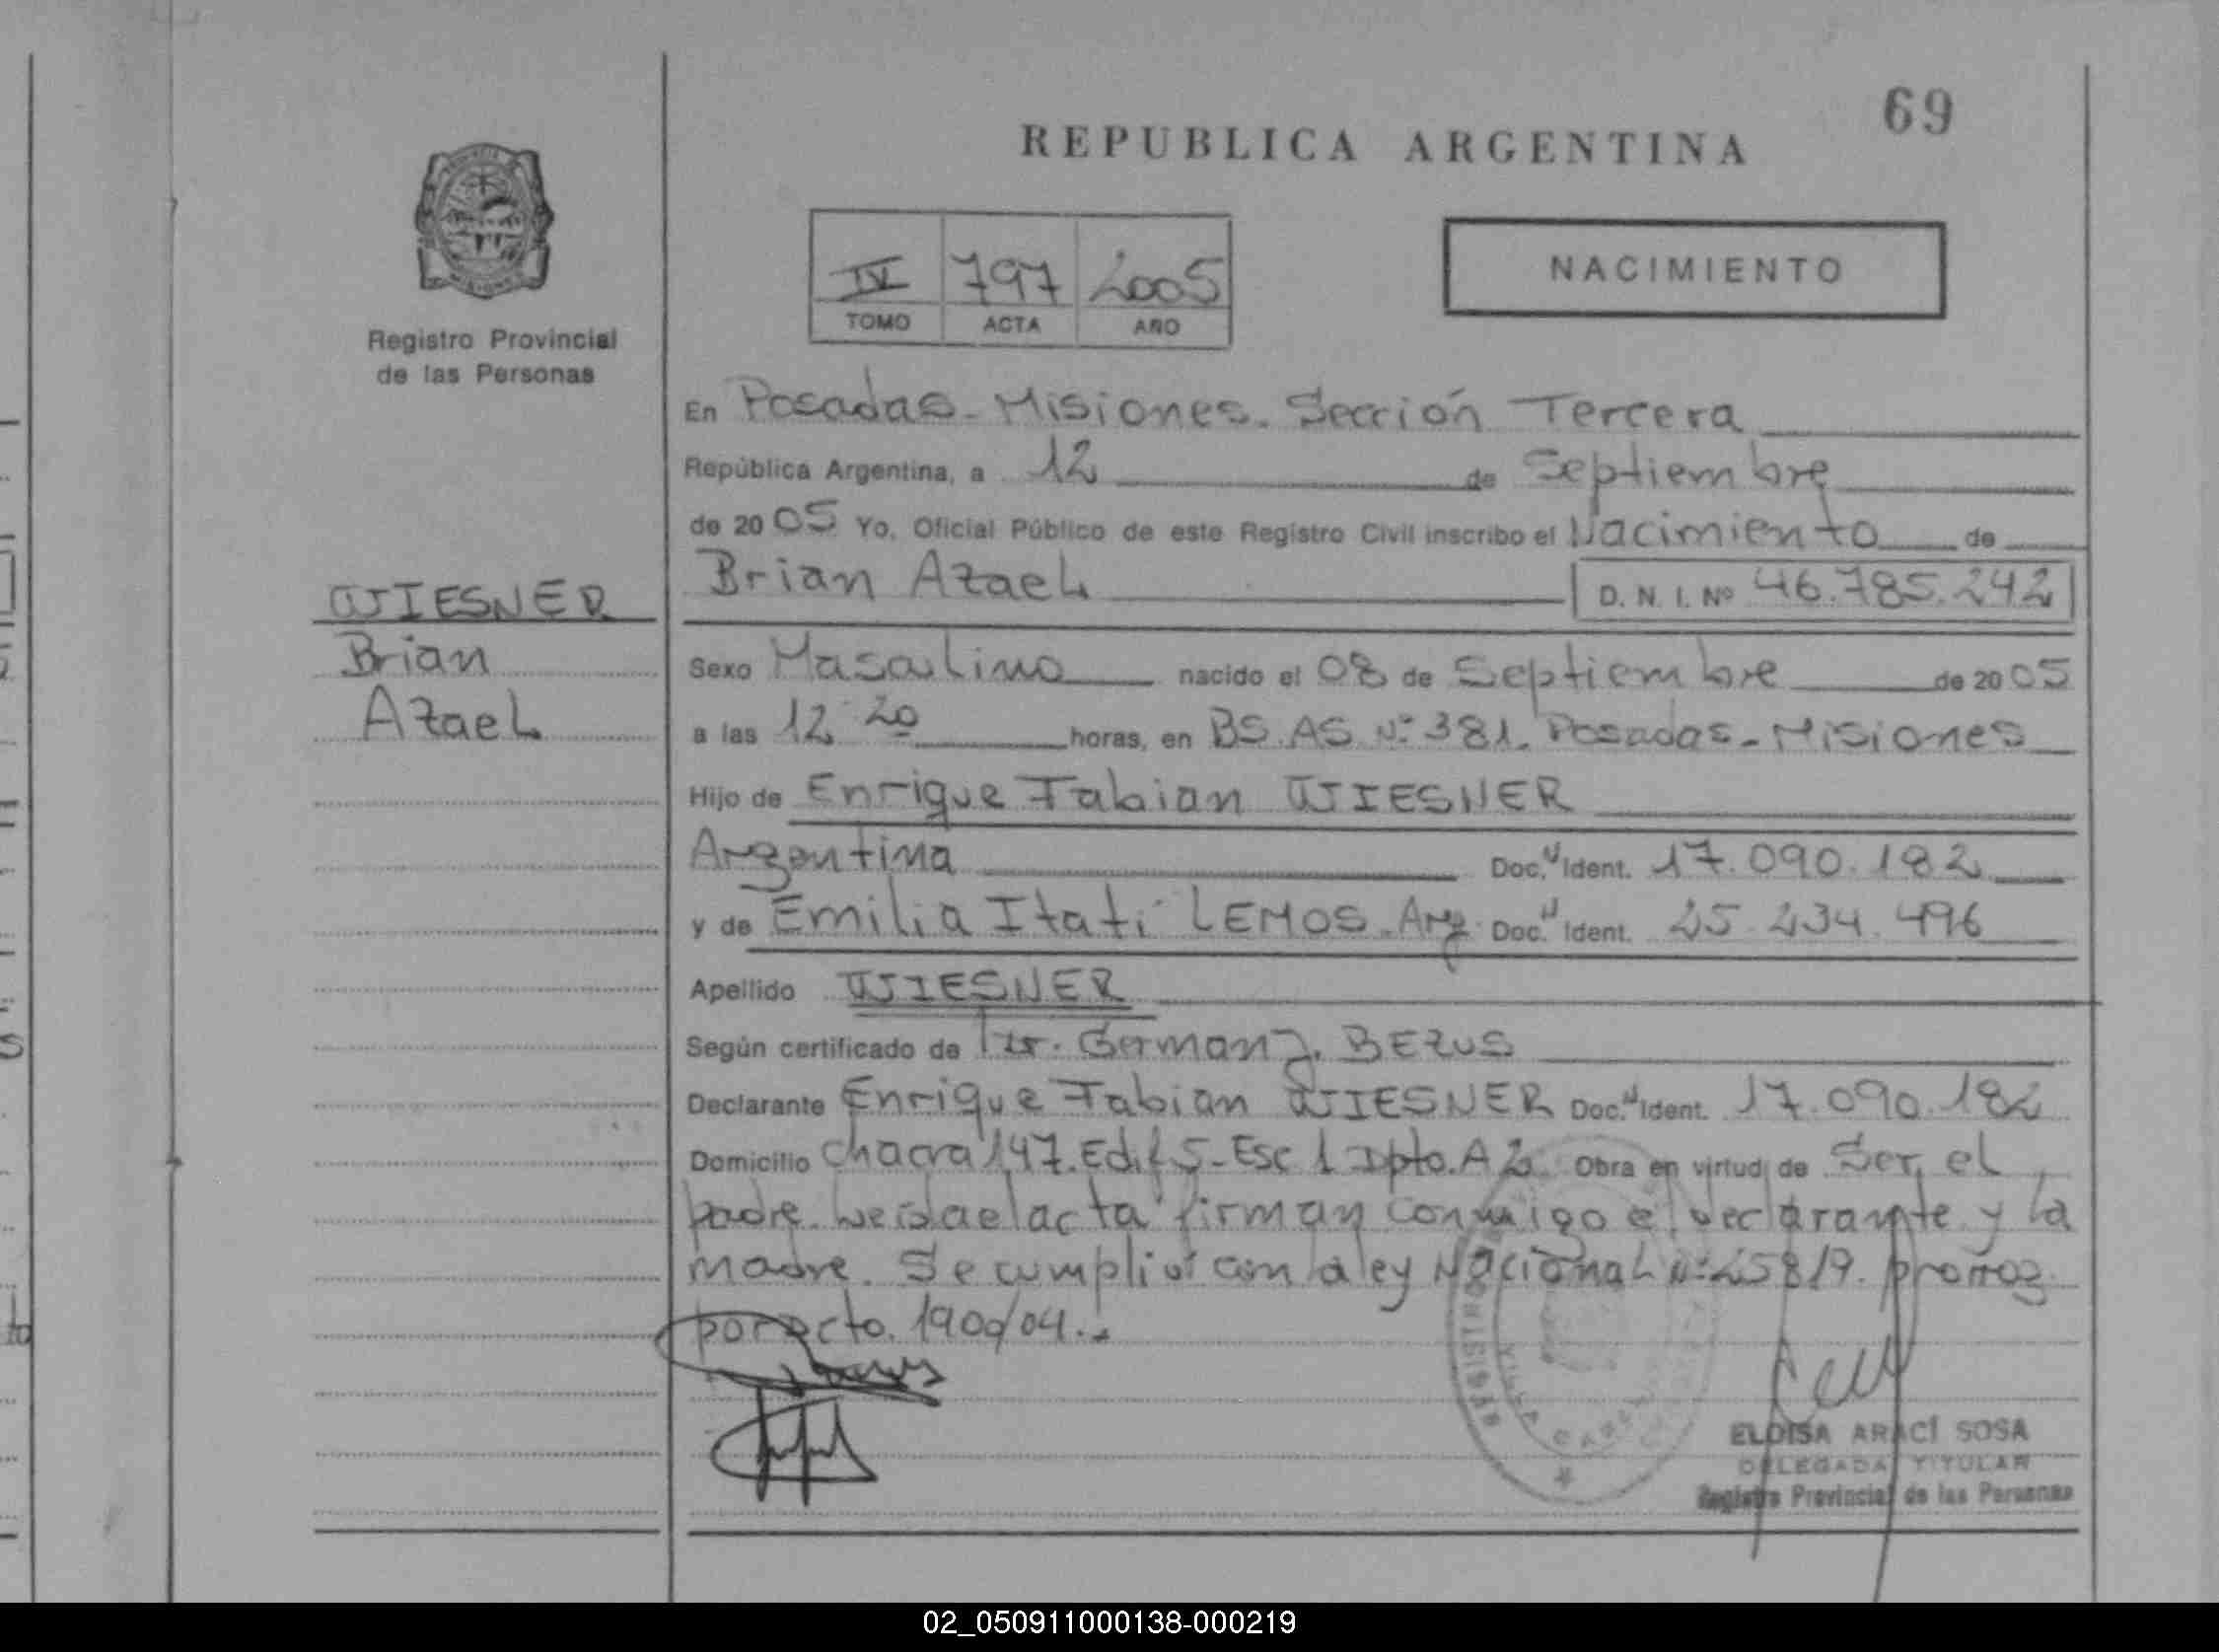 69
REPUBLICA ARGENTINA
IV 797 2005
TOMO ACTA AÑO
NACIMIENTO
Registro Provincial
de las Personas
WIESNER
Brian
Azael
En Posadas - Misiones. Sección Tercera
República Argentina, a 12 de Septiembre
de 2005 Yo, Oficial Público de este Registro Civil inscribo el Nacimiento de
Brian Azael D. N. I. Nº 46.785.242
Sexo Masculino nacido el 08 de Septiembre de 2005
a las 12 20 horas, en BS. AS. Nº 381. Posadas - Misiones
Hijo de Enrique Fabian WIESNER
Argentina Doc. Ident. 17.090.182
y de Emilia Itatí LEMOS. Arg. Doc. Ident. 25.234.496
Apellido WIESNER
Según certificado de Dr. German J. BEZUS
Declarante Enrique Fabian WIESNER Doc. Ident. 17.090.182
Domicilio Chacra 147. Edif 5 - Esc 1 Dpto. A 2 Obra en virtud de Ser el
padre. Leída el acta firman conmigo el declarante y la
madre. Se cumplió con la ley Nacional Nº 25819. prorrog.
por Dcto. 1900/04.
ELOISA ARACÍ SOSA
DELEGADA TITULAR
Registro Provincial de las Personas
02_050911000138-000219